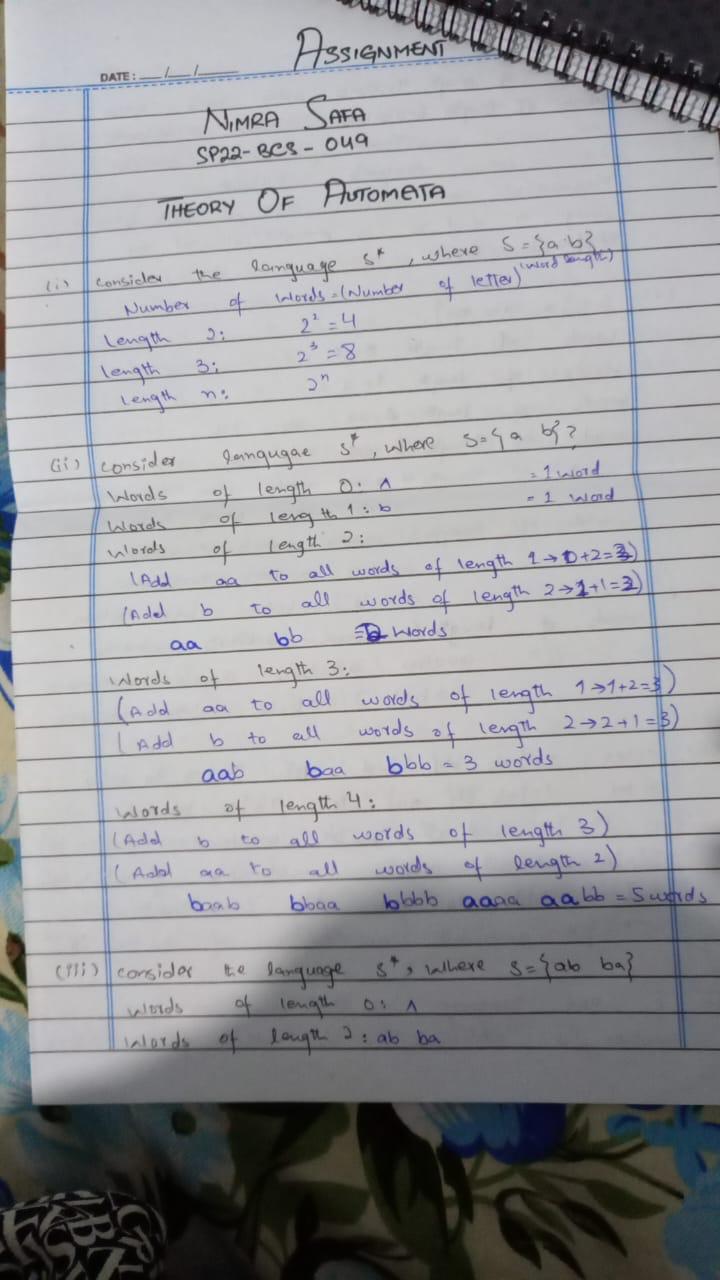 ASSIGNMENT
DATE: __/__/__
NIMRA SAFA
SP22-BCS-049
THEORY OF AUTOMATA
(i) consider the language S*, where S={a b}
Number of words=(Number of letter)(word length)
length 2: 2²=4
length 3: 2³=8
length n: 2ⁿ
(ii) consider langugae S*, where S={a b}?
Words of length 0: ʌ =1 word
Words of length 1: b =1 word
Words of length 2:
(Add aa to all words of length 1→0+2=3)
(Add b to all words of length 2→1+1=2)
aa bb =2 words
Words of length 3:
(Add aa to all words of length 1→1+2=3)
(Add b to all words of length 2→2+1=3)
aab baa bbb = 3 words
Words of length 4:
(Add b to all words of length 3)
(Add aa to all words of length 2)
baab bbaa bbbb aaaa aabb = 5 words
(iii) consider the language S*, where S={ab ba}
words of length 0: ʌ
words of length 2: ab ba